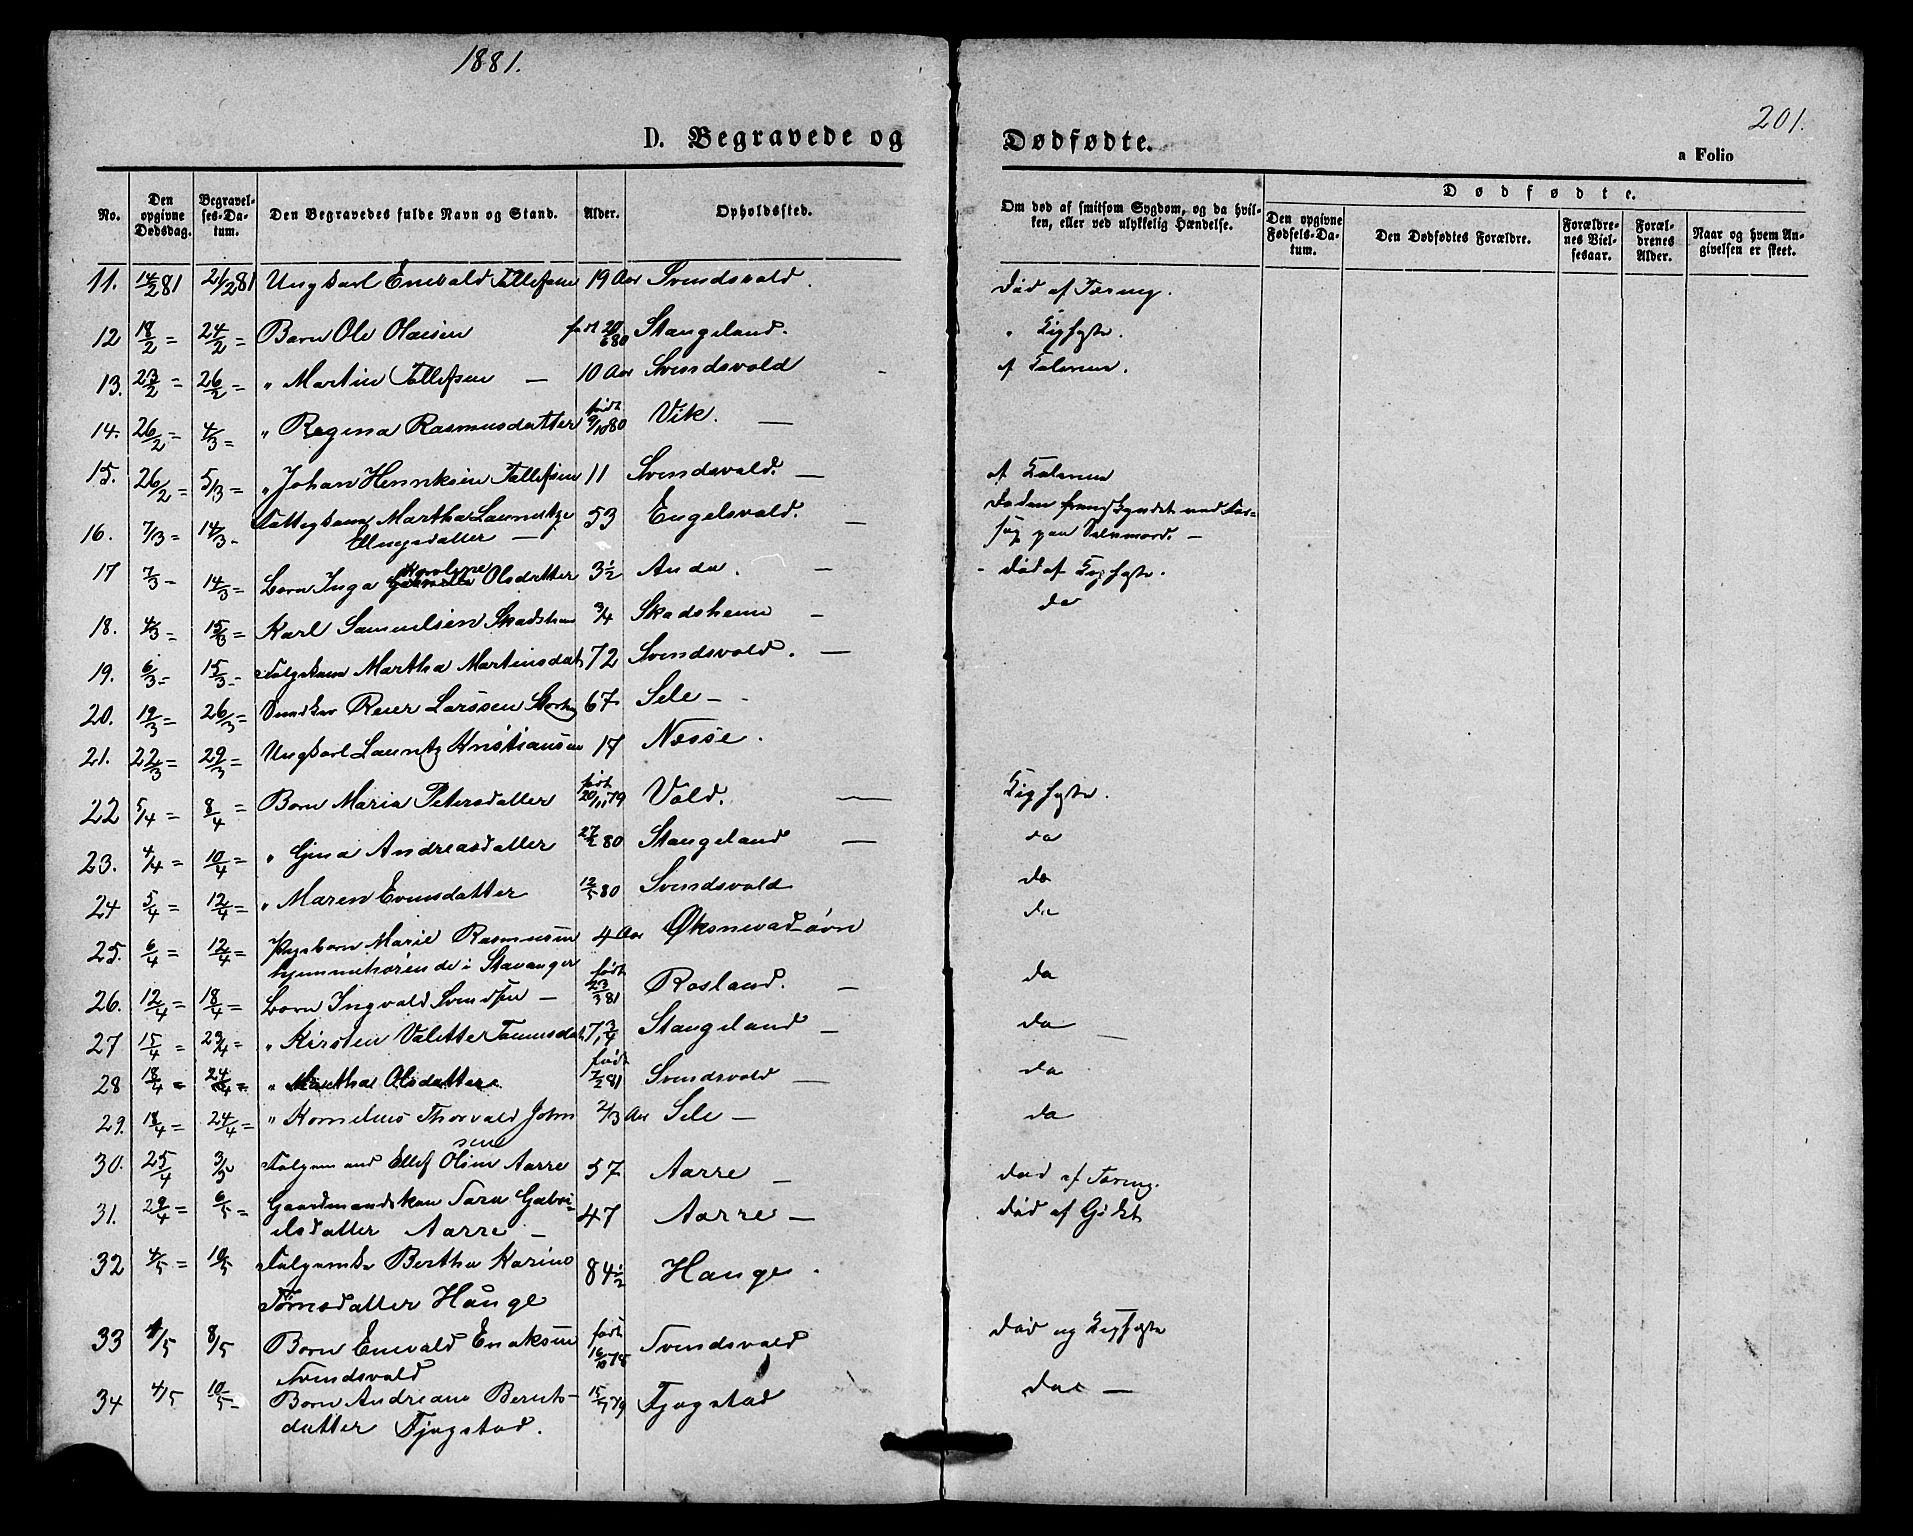 1881.
201.
D. Begravede og Dødfødte.
a Folio
No. Den opgivne Dødsdag. Begravelses-Datum. Den Begravedes fulde Navn og Stand. Alder. Opholdssted. Om død af smitsom Sygdom, og da hvilken, eller ved ulykkelig Hændelse. Dødfødte.
Den opgivne Fødsels-Datum. Den Dødfødtes Forældre. Forældrenes Vielsesaar. Forældrenes Alder. Naar og hvem Angivelsen er skeet.
11. 14/2 81 21/2 81 Ungkarl Enevald Tollefsen 19 Aar Svendsvold. Død af Tæring.
12 18/2 = 24/2 = Barn Ole Olaisen født 20/6 80 Stangeland. " Kighoste.
13. 23/2 = 26/2 = " Martin Tollefsen — 10 Aar Svendsvold af
14. 26/2 = 4/3 = " Regina Rasmusdatter født 9/10 80 Vik. —
15. 26/2 = 5/3 = " Johan Henriksen Tollefsen 11 Svendsvold. — af
16. 7/3 = 14/3 - Martha Lauritze 53 Engelsvold. — Døden fremskyndet ved For-
— søg paa Selvmord. —
17 7/3 - 14/3 = Barn Inga Olsdatter 3½ Anda. — - Død af Kighoste.
18. 4/3 = 15/3 = Karl Samuelsen Skadsheim 3/4 Skadsheim — do
19. 6/3 = 15/3 - Martha Martinsdat 72 Svendsvold. —
20. 19/3 = 26/3 = Reier Larssen 67 Sele —
21. 22/3 = 29/3 = Ungkarl Lauritz Kristiansen 17 Næsse.
22 5/4 = 8/4 = Barn Maria Petersdatter født 20/11 79 Vold. — Kighoste.
23. 4/4 = 10/4 = " Gina Andreasdatter 27/ 80 Stangeland — do
24 5/4 = 12/4 = " Maren Evensdatter 12/5 80 Svendsvold do
25. 6/4 = 12/4 = Marie Rasmusen 4 Aar Øksnevad øvn do
hjemmehørende i Stavanger
26. 12/4 = 18/4 = Barn Ingvald Svendsen — født 23/3 81 Rosland. — do
27 15/4 = 23/4 = " Kirsten Valette Tønnesdat 7 3/4 Stangeland — do
28 18/4 = 24/4 = " Martha Olsdatter født 7/2 81 Svendsvold — do
29. 18/4 = 24/4 = " Kornelius Thorvald John 2/3 Aar Sele — do
sen
30. 25/4 3/5 Ellef Olsen Aarre 57 Aarre — Død af Tæring.
31. 29/4 = 6/5 = Gaardmandskone Gabri- 47 Aarre — Død af Gikt
elsdatter Aarre —
32 4/5 = 10/5 Bertha Karine 84½ Hauge.
Tørresdatter Hauge
33 1/5 8/5 Barn Enevald Enoksen født 16/10 78 Svendsvold Død og Kighoste
Svendsvold
34 4/5 10/5 = Barn Andreane Bernts- 15/ 79 Tjøgstad do —
datter Tjøgstad.